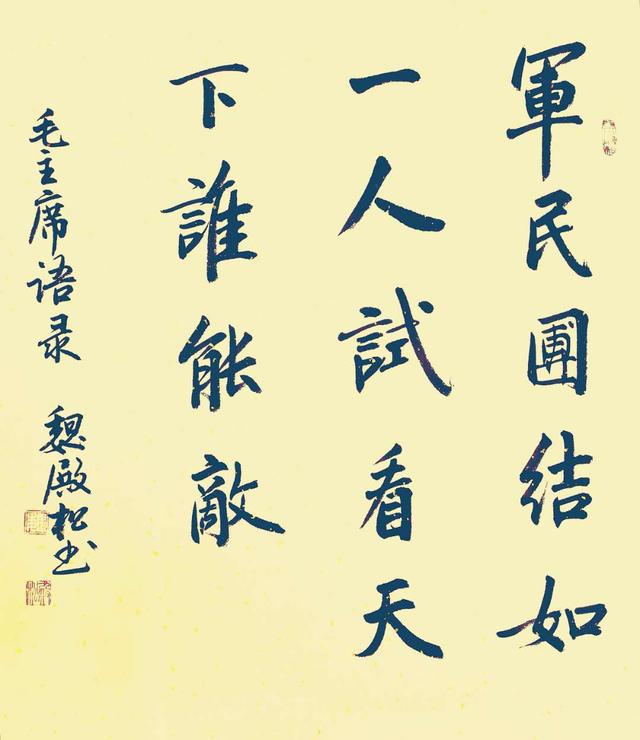 軍民團结如
一人試看天
下誰能敵
毛主席语录 魏殿松书